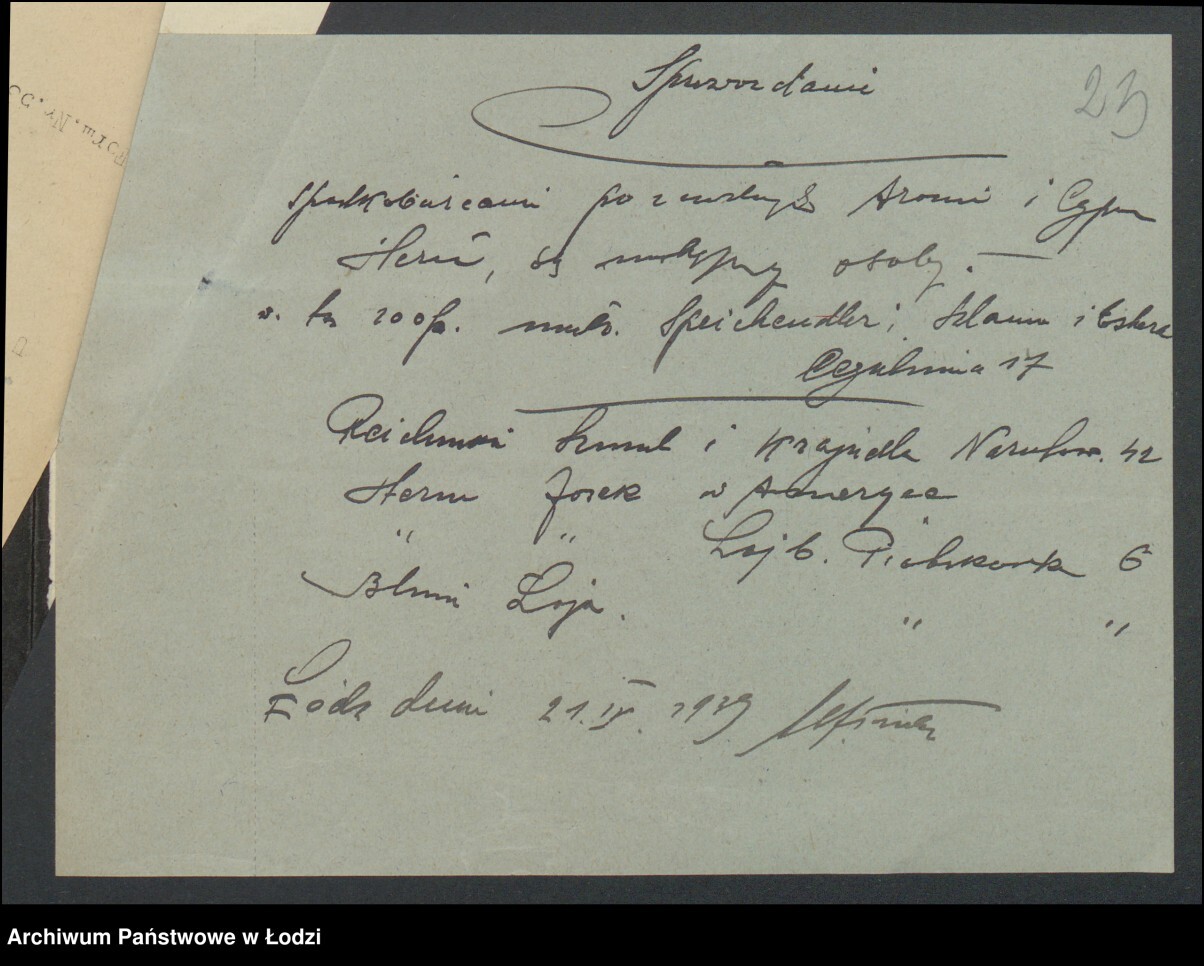 Sprawozdanie
23
Spadkobiercami po zmarłych Aronie i Cypra
Hern, są następny osoby.
w. ks 200p. małż. Speichendler; Szlama i Estera
Cegielniana 17
Reichman Szmul i Krajndla Narutow. 42
Hern Josek w Ameryce
" " Lajb. Piotrkowska 6
Blum Łaja. " "
Łódź dnia 21.IV. 1939
Form. Nr.
Archiwum Państwowe w Łodzi